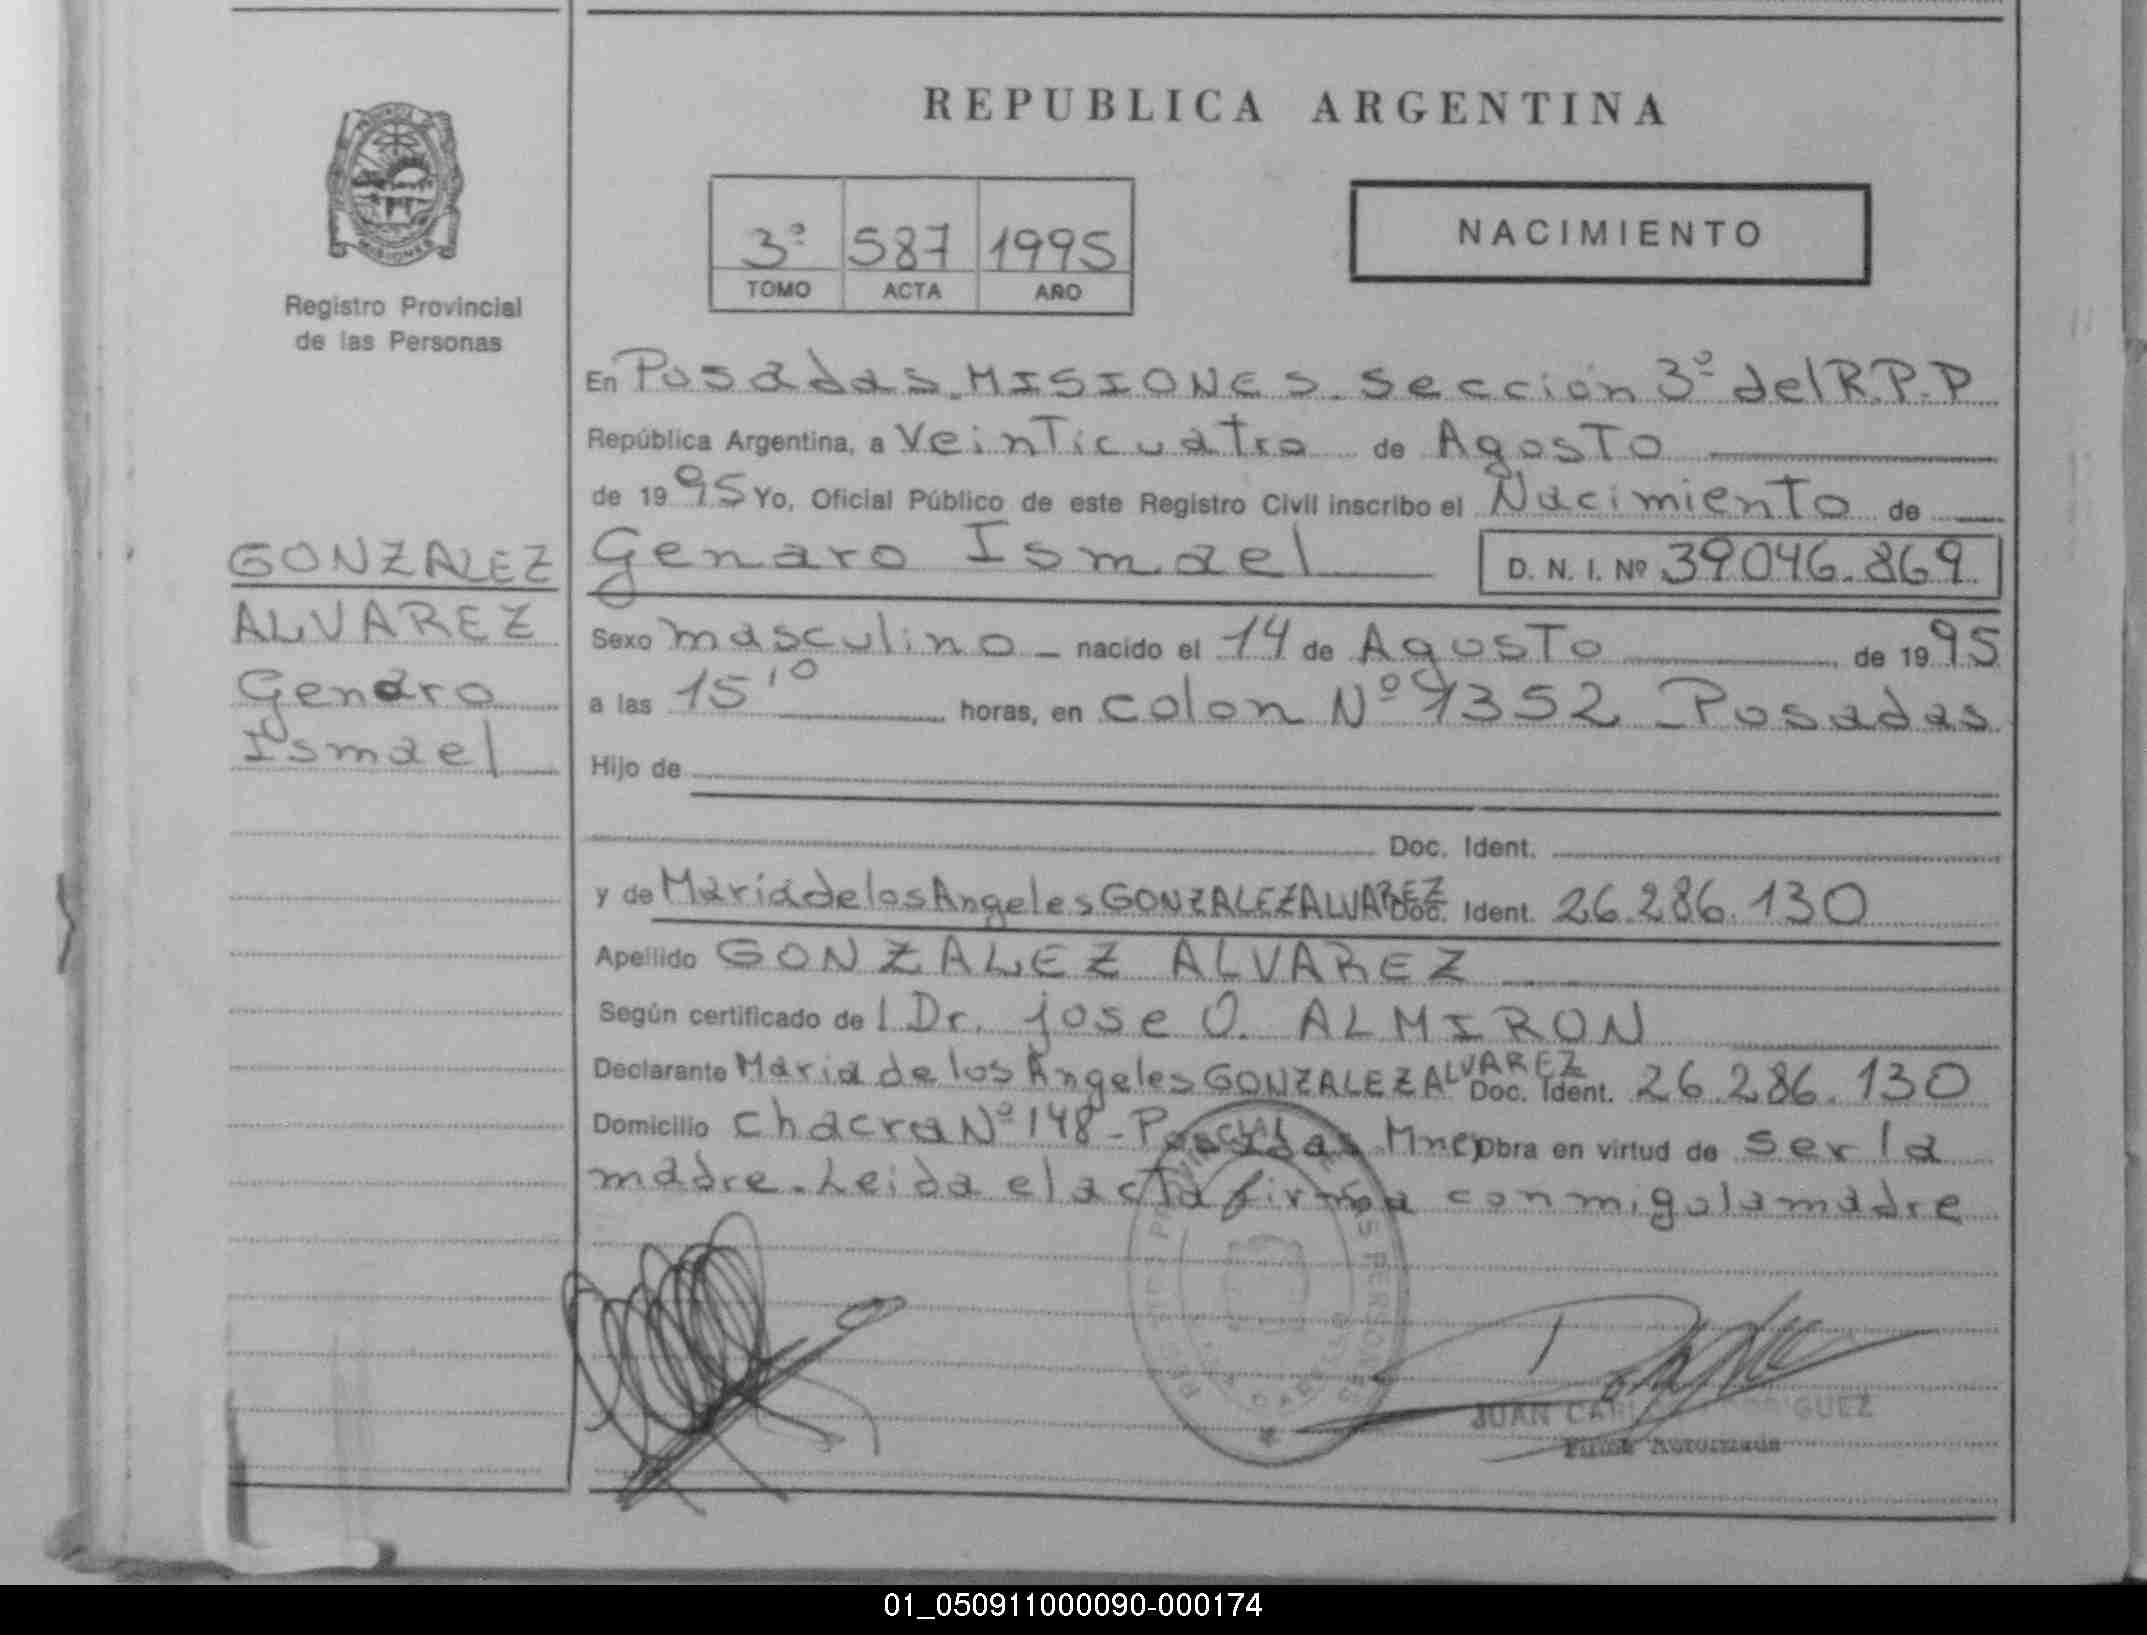 REPUBLICA ARGENTINA
MISIONES
Registro Provincial
de las Personas
3º 587 1995
TOMO ACTA AÑO
NACIMIENTO
En Posadas - MISIONES - Sección 3º del R.P.P
República Argentina, a Veinticuatro de Agosto
de 1995 Yo, Oficial Público de este Registro Civil inscribo el Nacimiento de
Genaro Ismael D. N. I. Nº 39046.869
GONZALEZ
ALVAREZ
Genaro
Ismael
Sexo masculino nacido el 14 de Agosto de 1995
a las 15'10 horas, en colon Nº 1352 - Posadas
Hijo de
Doc. Ident.
y de Maria de los Angeles GONZALEZ ALVAREZ Doc. Ident. 26.286.130
Apellido GONZALEZ ALVAREZ
Según certificado del Dr. jose O. ALMIRON
Declarante Maria de los Angeles GONZALEZ ALVAREZ Doc. Ident. 26.286.130
Domicilio chacra Nº 148 - Posadas Mnes Obra en virtud de ser la
madre. Leida el acta firma conmigo la madre
JUAN CARLOS RODRIGUEZ
Firma Autorizada
01_050911000090-000174